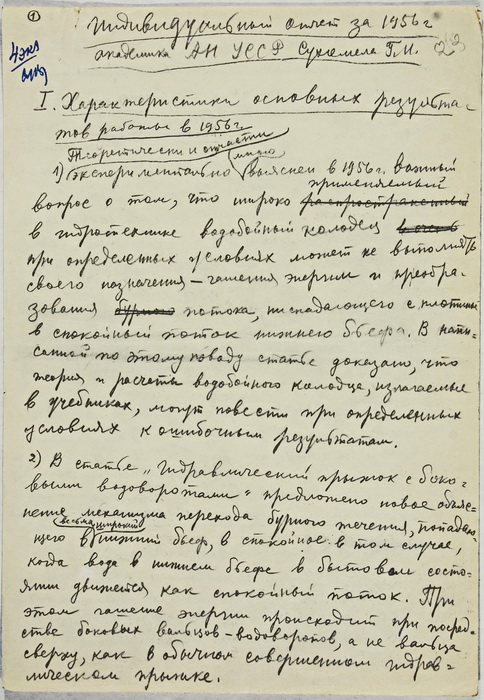 ①
Индивидуальный отчет за 1956 г
академика АН УССР Сухомела Г.И.
4 экз
I. Характеристика основных результа-
тов работы в 1956 г.
Теоретически и отчасти
1) экспериментально (мною) выяснен в 1956 г. важный
применяемый
вопрос о том, что широко распространенный
в гидротехнике водобойный колодец
при определенных условиях может не выполнять
своего назначения – гашения энергии и преобра-
зования бурного потока, ниспадающего с плотины
в спокойный поток нижнего бьефа. В напи-
санной по этому поводу статье доказано, что
теория и расчеты водобойного колодца, излагаемые
в учебниках, могут повести при определенных
условиях к ошибочным результатам.
2) В статье „Гидравлический прыжок с боко-
выми водоворотами" предложено новое объяс-
нение механизма перехода бурного течения, попадаю-
весьма широкий
щего в нижний бьеф, в спокойное в том случае,
когда вода в нижнем бьефе в бытовом состо-
янии движется как спокойный поток. При
этом гашение энергии происходит при посред-
стве боковых вальцов – водоворотов, а не вальца
сверху, как в обычном совершенном гидрав-
лическом прыжке.